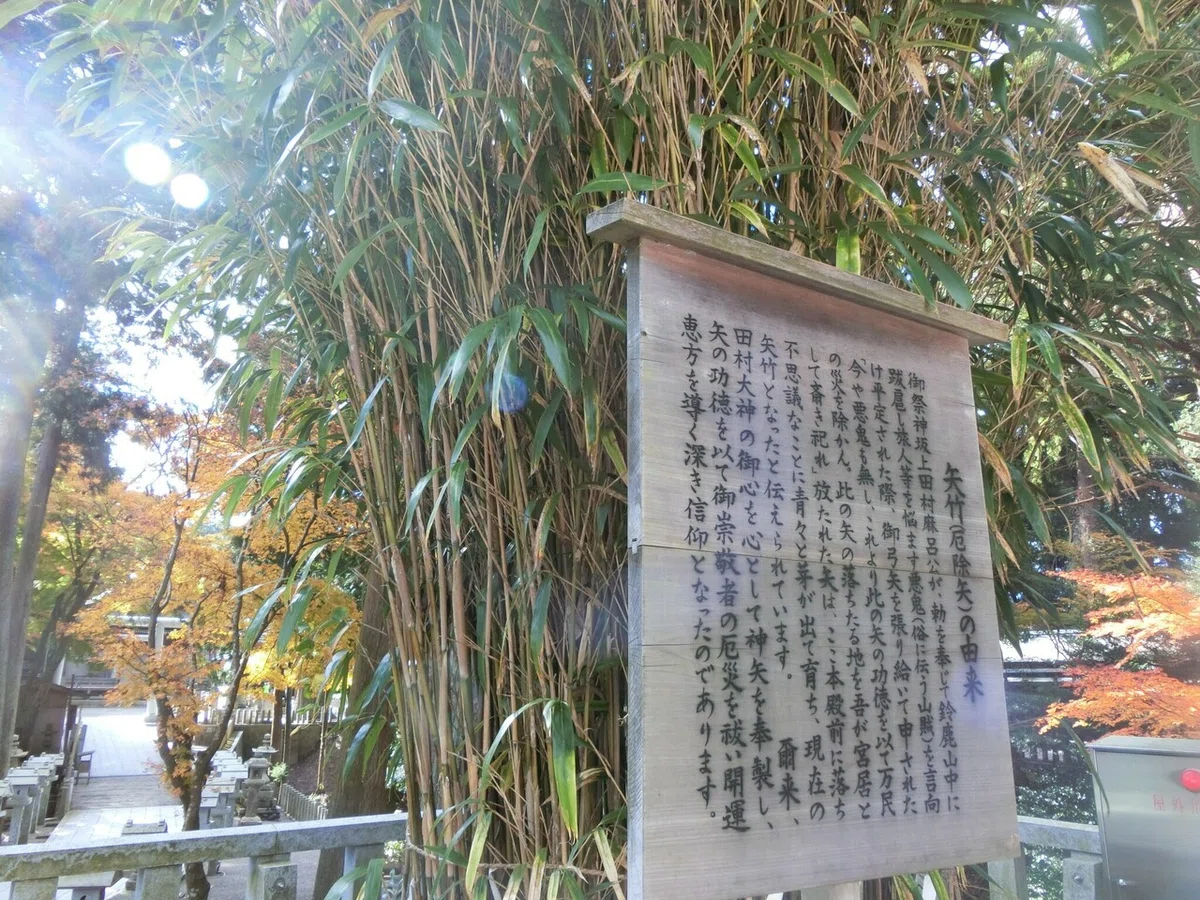 矢竹(厄除矢)の由来
御祭神坂上田村麻呂公が、勅を奉じて鈴鹿山中に
跋扈し旅人等を悩ます悪鬼(俗に伝う山賊)を言向
け平定された際、御弓矢を張り給いて申された
「今や悪鬼も無し、これより此の矢の功徳を以て万民
の災を除かん。此の矢の落ちたる地を吾が宮居と
して斎き祀れ」放たれた矢は、ここ本殿前に落ち
不思議なことに青々と芽が出て育ち、現在の
矢竹となったと伝えられています。　爾来、
田村大神の御心を心として神矢を奉製し、
矢の功徳を以て御崇敬者の厄災を祓い開運
恵方を導く深き信仰となったのであります。